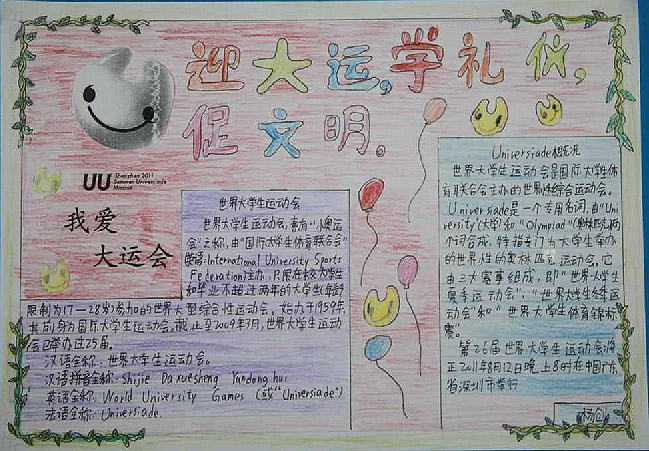 迎大运，学礼仪，
促文明。
UU Shenzhen 2011
Summer Universiade
Mascot
我爱
大运会
世界大学生运动会
世界大学生运动会，素有“小奥运
会”之称，由“国际大学生体育联合会”
英语:International University Sports
Federation主办，只限在校大学生
和毕业不超过两年的大学生(年龄
限制为17—28岁)参加的世界大型综合性运动会。始办于1959年，
其前身为国际大学生运动会。截止至2009年7月，世界大学生运动
会已举办过25届。
汉语全称：世界大学生运动会。
汉语拼音全称：Shijie Daxuesheng Yundong hui
英语全称：World University Games (或“Universiade”)
法语全称：Universiade.
Universiade概况
世界大学生运动会是国际大学生体
育联合会主办的世界性综合运动会。
Universiade是一个专用名词，由“Uni
versity”(大学)和“Olympiad”(奥林匹克)两
个词合成，特指专门为大学生举办
的世界性的奥林匹克运动会。它
由三大赛事组成，即“世界大学生
夏季运动会”、“世界大学生冬季运
动会”和“世界大学生体育锦标
赛”。
第26届世界大学生运动会将
于2011年8月12日晚上8时在中国广东
省深圳市举行